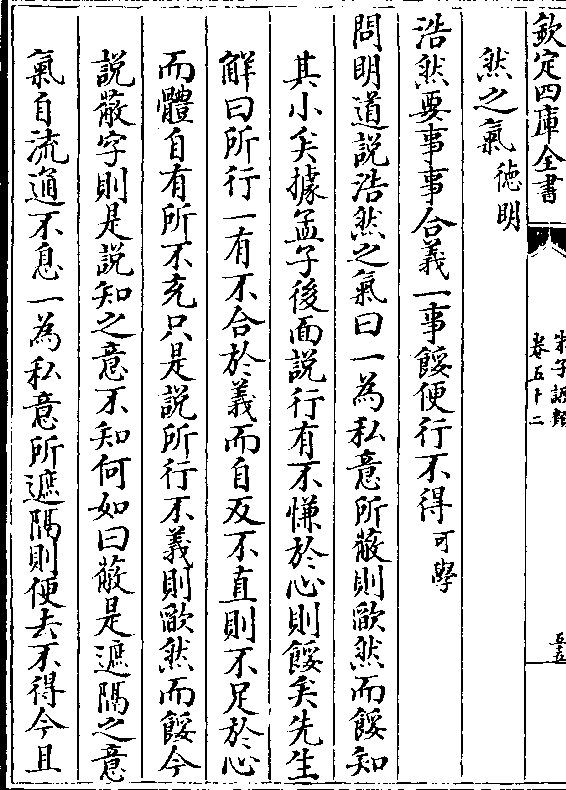 欽定四庫全書
朱子語類
卷五十二
五五
然之氣德明
浩然要事事合義一事餒便行不得可學
問明道說浩然之氣曰一為私意所蔽則歉然而餒知
其小矣據孟子後面說行有不慊於心則餒矣先生
解曰所行一有不合於義而自反不直則不足於心
而體自有所不充只是說所行不義則歉然而餒今
說蔽字則是說知之意不知何如曰蔽是遮隔之意
氣自流通不息一為私意所遮隔則便去不得今且